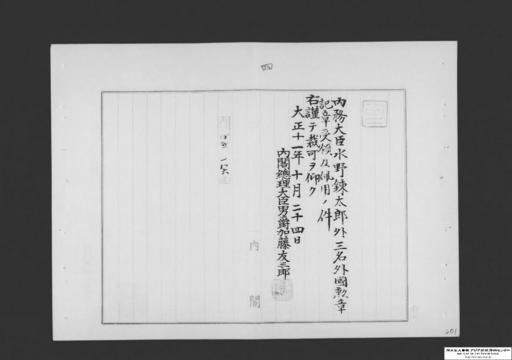 内務大臣水野錬太郎外三名外國勲章
記章受領及佩用ノ件
右謹テ裁可ヲ仰ク
大正十一年十月二十四日
内閣總理大臣男爵加藤友三郎
内閣